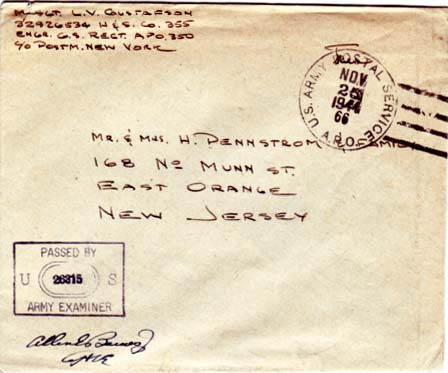 M/Sgt. L.V. GUSTAFSON
32926534 H&S. CO. 355
ENGR. G.S. REGT. APO. 350
c/o POSTM. NEW YORK
U.S. ARMY POSTAL SERVICE
NOV
1944
66
A.P.O.
MR. & MRS. H. PENNSTROM & FAMILY
168 NO MUNN ST.
EAST ORANGE
NEW JERSEY
PASSED BY
U 26315 S
ARMY EXAMINER